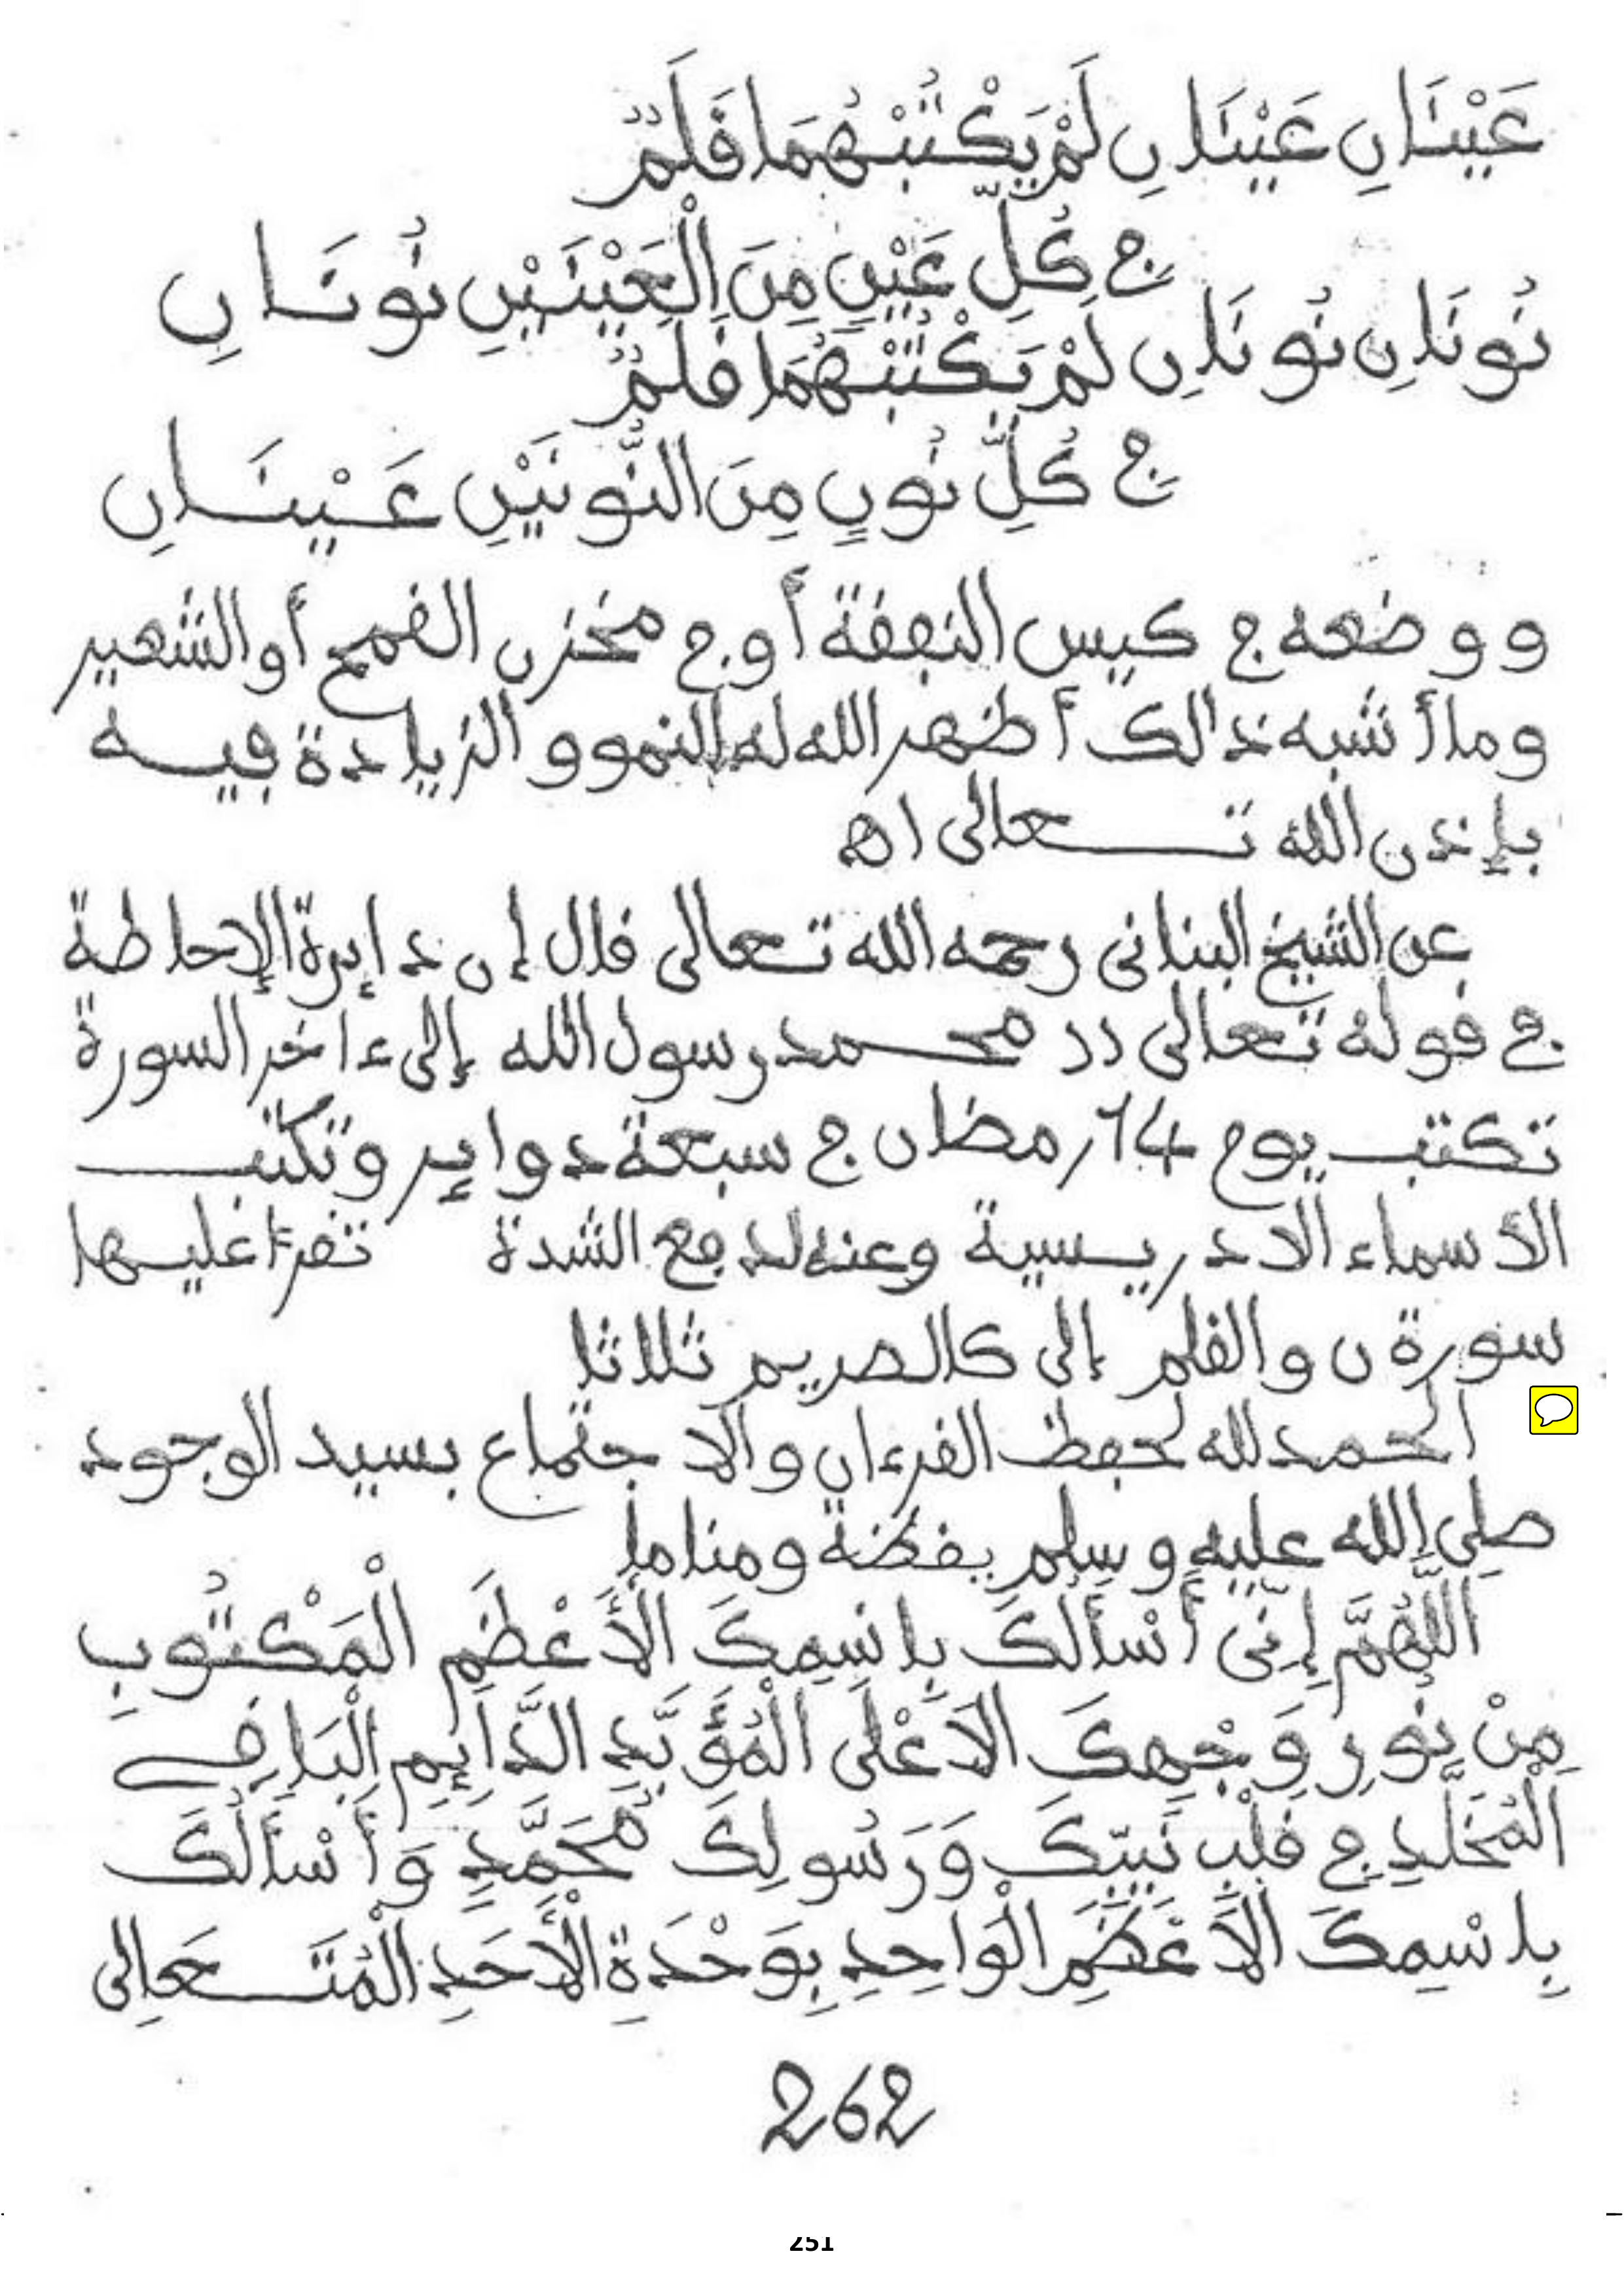 عَيْنَانِ عَيْنَانِ لَمْ يَكْتُبْهُمَا قَلَمٌ
فِي كُلِّ عَيْنٍ مِنَ الْعَيْنَيْنِ نُونَانِ
نُونَانِ نُونَانِ لَمْ يَكْتُبْهُمَا قَلَمٌ
فِي كُلِّ نُونٍ مِنَ النُّونَيْنِ عَيْنَانِ
ووضعه في كيس النفقة أو في مخزن القمح أو الشعير
وما أشبه ذالك أظهر الله له النمو و الزيادة فيه
بإذن الله تعالى اه
عن الشيخ البناني رحمه الله تعالى قال إن دايرة الإحاطة
في قوله تعالى (( محمد رسول الله إلى ءاخر السورة
تكتب يوم 14 رمضان في سبعة دواير وتكتب
الأسماء الادريسية وعنه لدفع الشدة تقرأ عليها
سورة ن والقلم إلى كالصريم ثلاثا
الحمد لله لحفظ القرءان والاجتماع بسيد الوجود
صلى الله عليه وسلم يقظة ومناما
اللَّهُمَّ إِنِّي أَسْأَلُكَ بِاسْمِكَ الأَعْظَمِ الْمَكْتُوبِ
مِنْ نُورِ وَجْهِكَ الاَعْلَى الْمُؤَبَّدِ الدَّايِمِ الْبَاقِي
الْمُخَلَّدِ فِي قَلْبِ نَبِيِّكَ وَرَسُولِكَ مُحَمَّدٍ وَأَسْأَلُكَ
بِاسْمِكَ الاَعْظَمِ الْوَاحِدِ بِوَحْدَةِ الْأَحَدِ الْمُتَعَالِي
262
251